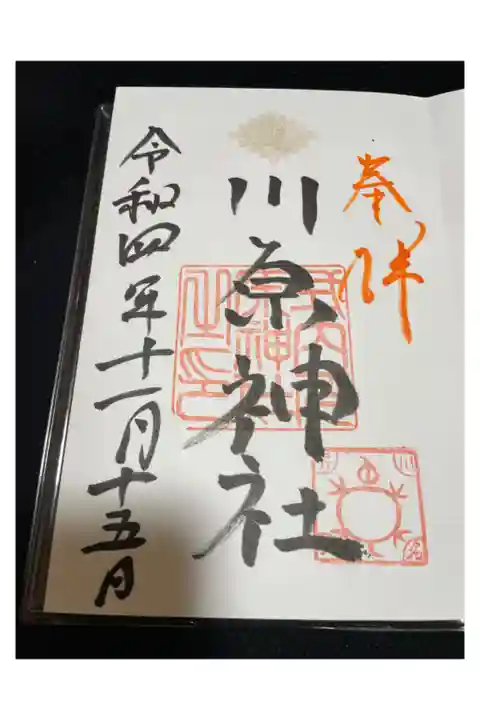 奉拝
川原神社
令和四年十一月十五日